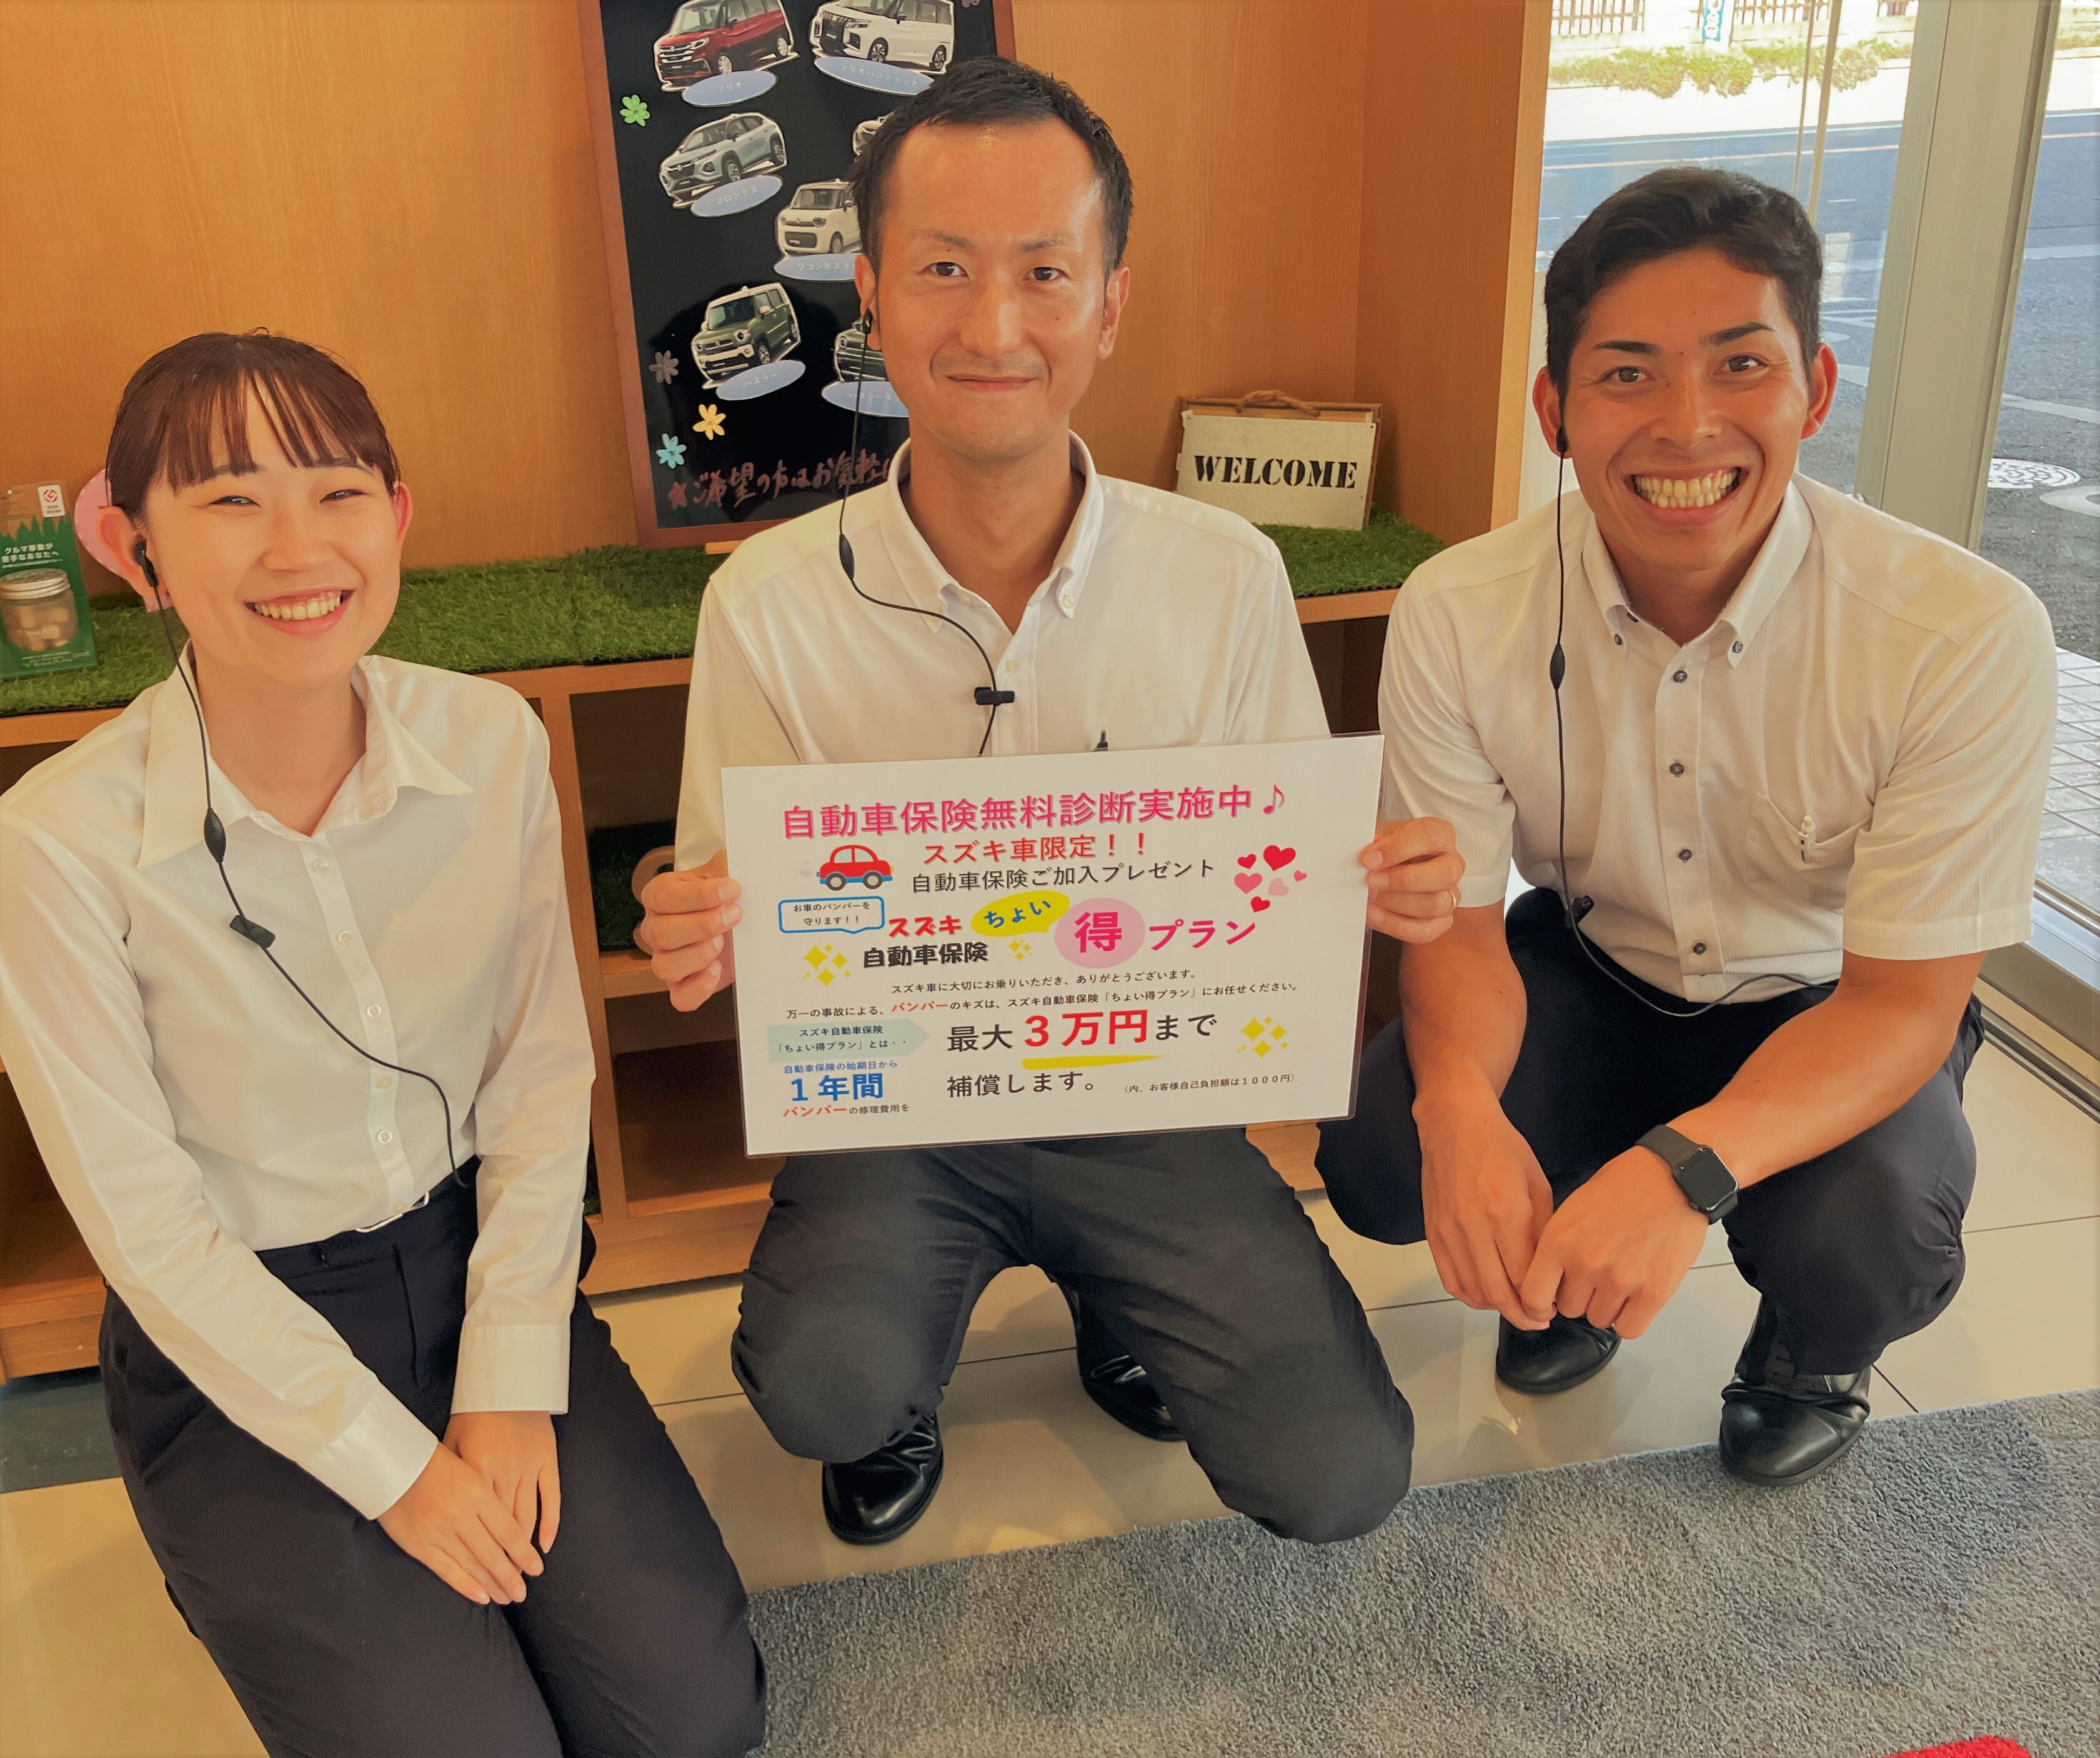 ソリオ
ソリオバンディット
フロンクス
ワゴンRスマ
ハスラー
ハスラータ
ご希望の方はお気軽に
WELCOME
クルマ移動が
苦手なあなたへ
自動車保険無料診断実施中♪
スズキ車限定！！
自動車保険ご加入プレゼント
お車のバンパーを
守ります！！
スズキ ちょい 得 プラン
自動車保険
スズキ車に大切にお乗りいただき、ありがとうございます。
万一の事故による、バンパーのキズは、スズキ自動車保険「ちょい得プラン」にお任せください。
スズキ自動車保険
「ちょい得プラン」とは・・
自動車保険の始期日から
１年間
バンパーの修理費用を
最大３万円まで
補償します。
（内、お客様自己負担額は１０００円）